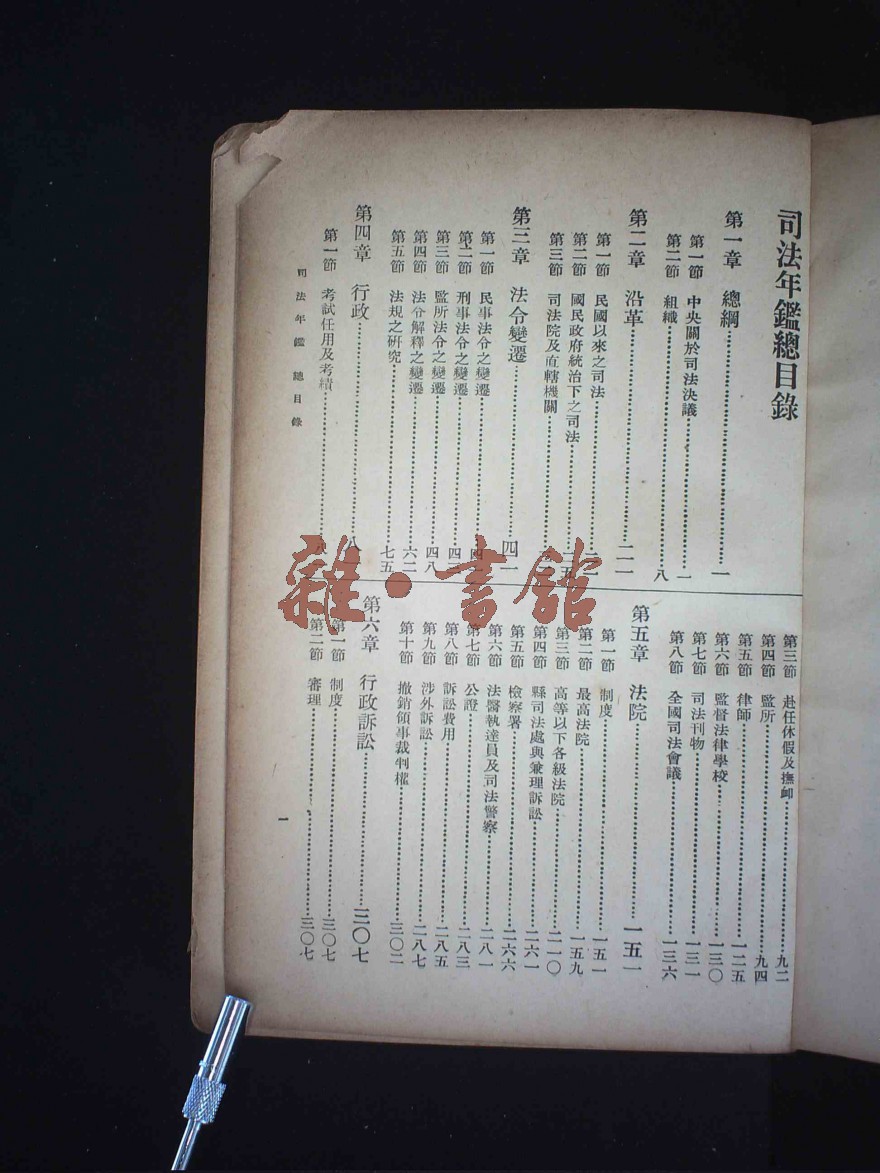 司法年鑑總目錄
第一章 總綱……一
第一節 中央關於司法決議……一
第二節 組織……八
第二章 沿革……二一
第一節 民國以來之司法……二一
第二節 國民政府統治下之司法……二五
第三節 司法院及直轄機關
第三章 法令變遷……四一
第一節 民事法令之變遷……四一
第二節 刑事法令之變遷……四三
第三節 監所法令之變遷……四八
第四節 法令解釋之變遷……六二
第五節 法規之研究……七五
第四章 行政……八
第一節 考試任用及考績……八
第三節 赴任休假及撫卹……九二
第四節 監所……九四
第五節 律師……一二五
第六節 監督法律學校……一三〇
第七節 司法刊物……一三一
第八節 全國司法會議……一三六
第五章 法院……一五一
第一節 制度……一五一
第二節 最高法院……一五九
第三節 高等以下各級法院……二一〇
第四節 縣司法處與兼理訴訟……二六一
第五節 檢察署……二六六
第六節 法醫執達員及司法警察……二八一
第七節 公證……二八三
第八節 訴訟費用……二八五
第九節 涉外訴訟……二八七
第十節 撤銷領事裁判權……三〇二
第六章 行政訴訟……三〇七
第一節 制度……三〇七
第二節 審理……三〇七
司法年鑑 總目錄
一
雜·書館